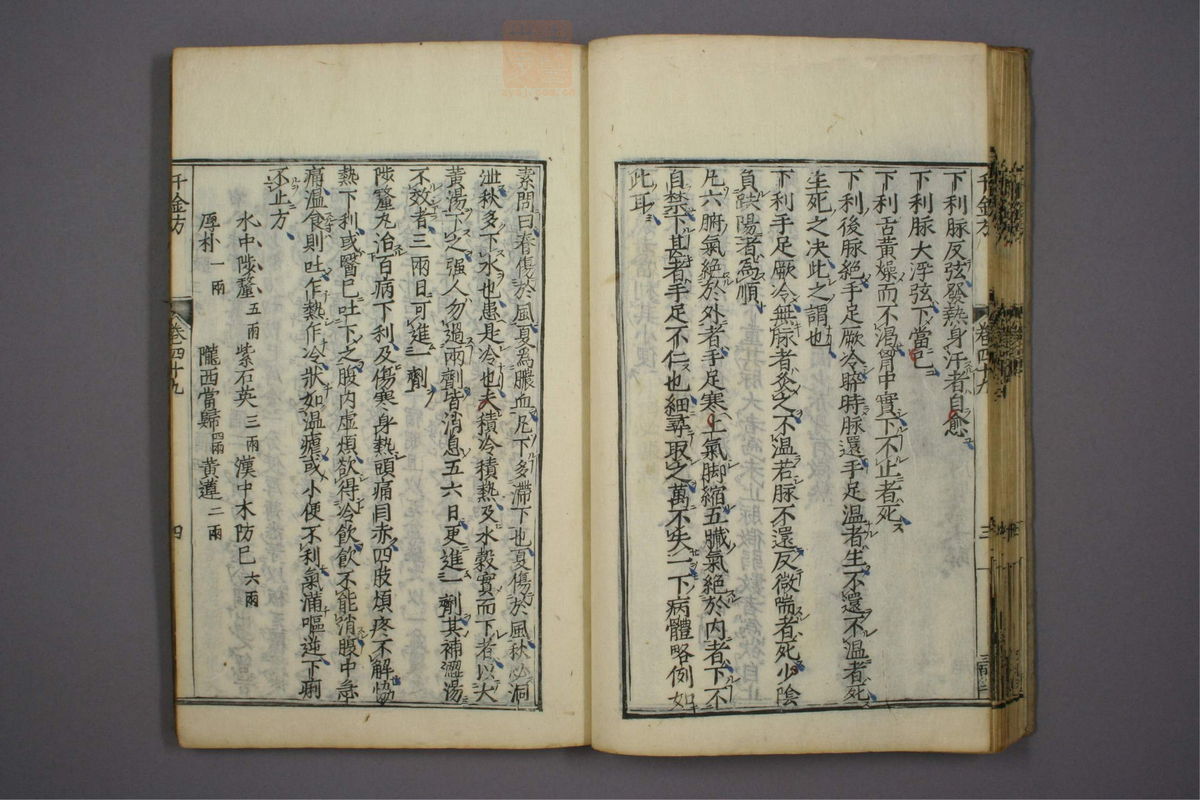 下利脉反弦發熱身汗者自愈
下利脉大浮弦下當已
下利舌黄燥而不渴胷中實下不止者死
下利後脉絶手足厥冷晬時脉還手足温者生不還不温者死
生死之决此之謂也
下利手足厥冷無脉者灸之不温若脉不還反微喘者死少陰
負趺陽者為順
凡六腑氣絶於外者手足寒上氣脚縮五臟氣絶於内者下不
自禁下甚者手足不仁也細尋取之萬不失一下病體略例如
此耳
千金方
卷四十九
三
素問曰春傷於風夏為膿血凡下多滯下也夏傷於風秋必洞
泄秋多下水也患是冷也夫積冷積熱及水穀實而下者以大
黄湯下之强人勿過兩劑皆消息五六日更進一劑其補澀湯
不效者三兩日可進一劑
陟釐丸治百病下利及傷寒身熱頭痛目赤四肢煩疼不解恊
熱下利或醫已吐下之腹内虚煩欲得冷飲飲不能消腹中急
痛温食則吐乍熱乍冷狀如温瘧或小便不利氣滿嘔逆下痢
不止方
水中陟釐五兩 紫石英三兩 漢中木防已六兩
厚朴一兩 隴西當歸四兩 黄連二兩
千金方
卷四十九
四